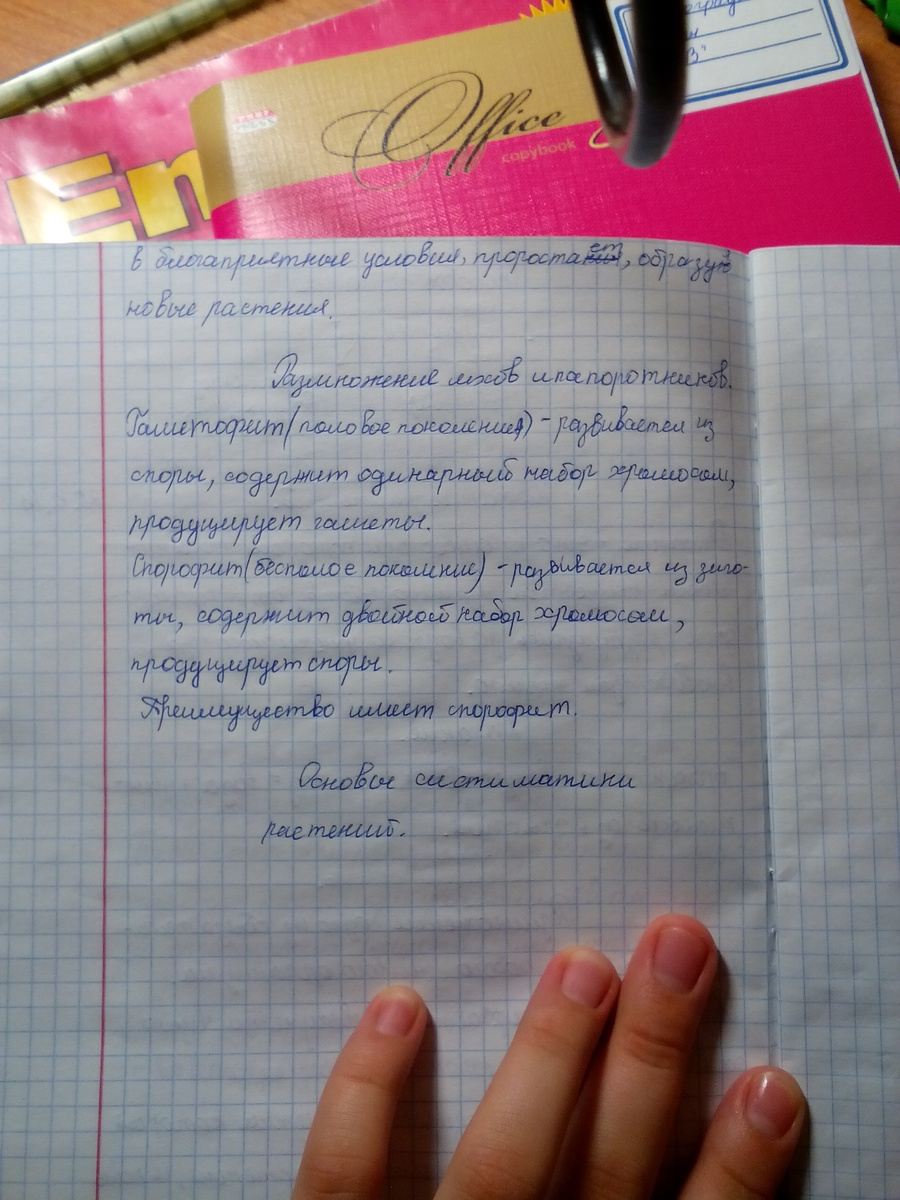 En
Office
copybook
В"
в благаприятные условия, прорастает, образуя
новые растения.
Размножение мхов и папоротников.
Гаметофит (половое поколение) - развивается из
споры, содержит одинарный набор хромосом,
продуцирует гаметы.
Спорофит (бесполое поколение) - развивается из зиго-
ты, содержит двойной набор хромосом,
продуцирует споры.
Преимущество имеет спорофит.
Основы систиматики
растений.